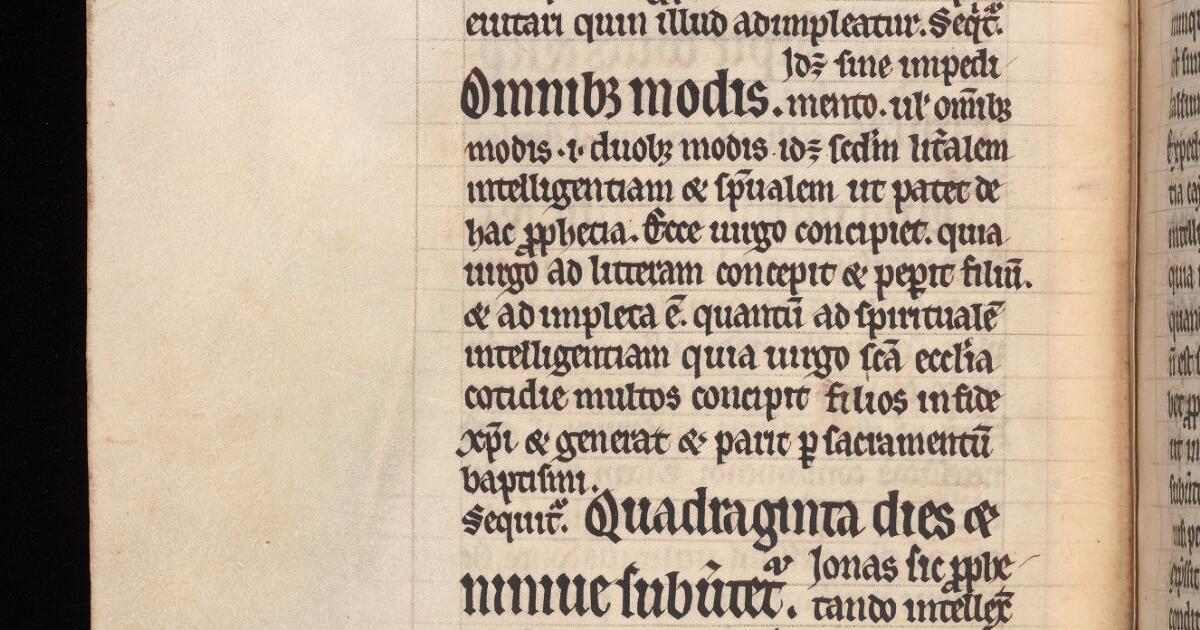 euitari quin illud adimpleatur. Seqͣt̄.
Idꝫ̄ sine impedi
Omnibꝫ modis. mento. ul̓ om̄ibꝫ
modis .i. duobꝫ modis idꝫ̄ scd̄m lit̄alem
intelligentiam & sp̄ualem ut patet de
hac ꝓphetia. Ecce uirgo concipiet. quia
uirgo ad litteram concepit & pep̄it filiū.
& ad impleta ē. quantū ad spiritualē
intelligentiam quia uirgo scā eccl̄ia
cotidie multos concipit filios in fide
xp̄i & generat & parit ꝑ sacramentū
baptismi.
Sequit̄ͣ. Quadraginta dies &
niniue subūtetͣ. Ionas sic ꝓphe
tando intellex̄